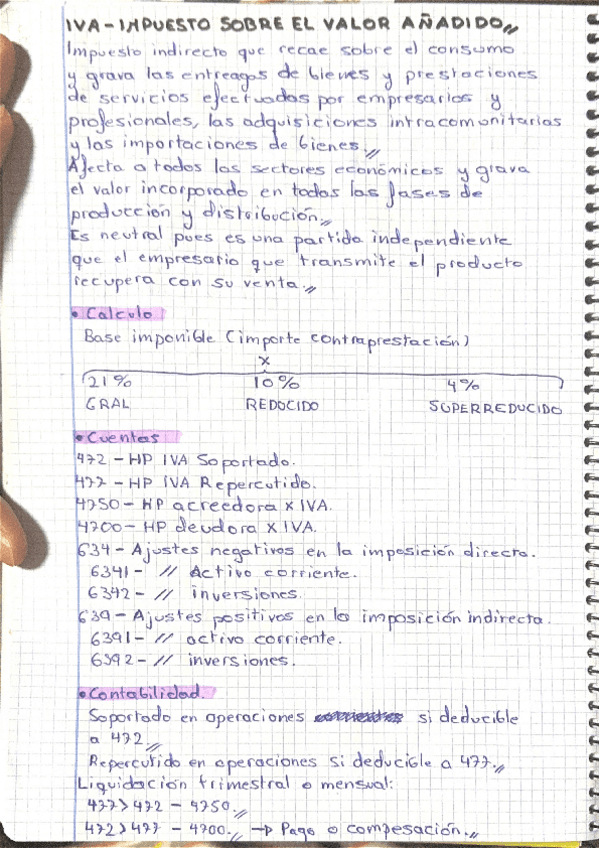 IVA - IMPUESTO SOBRE EL VALOR AÑADIDO,,
Impuesto indirecto que recae sobre el consumo
y grava las entregas de bienes y prestaciones
de servicios efectuadas por empresarios y
profesionales, las adquisiciones intracomunitarias
y las importaciones de bienes.,,
Afecta a todos los sectores económicos y grava
el valor incorporado en todas las fases de
producción y distribución,,
Es neutral pues es una partida independiente
que el empresario que transmite el producto
recupera con su venta.,,
• Calculo
Base imponible (importe contraprestación)
x
21% 10% 4%
GRAL REDUCIDO SUPERREDUCIDO
• Cuentas
472 - HP IVA Soportado.
477 - HP IVA Repercutido.
4750 - HP acreedora x IVA.
4700 - HP deudora x IVA.
634 - Ajustes negativos en la imposición directa.
6341 - // Activo corriente.
6342 - // inversiones.
639 - Ajustes positivos en la imposición indirecta.
6391 - // activo corriente.
6392 - // inversiones.
• Contabilidad.
Soportado en operaciones si deducible
a 472,,
Repercutido en operaciones si deducible a 477.,,
Liquidación trimestral o mensual:
477 > 472 - 4750.,,
472 > 477 - 4700.,, → Pago o compesación.,,